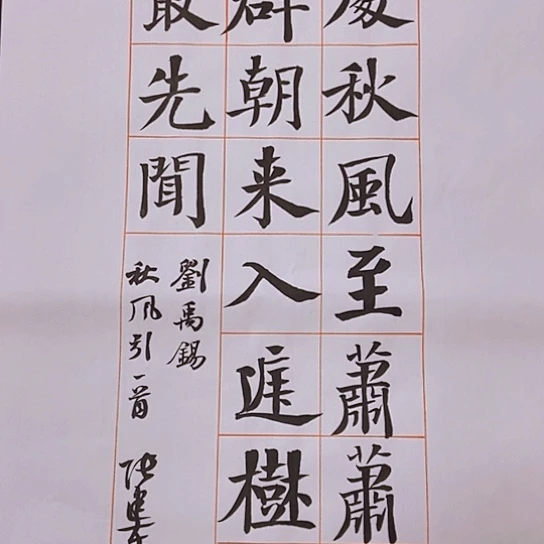 處秋風至蕭蕭
群朝来入庭樹
最先聞
劉禹錫
秋風引一首